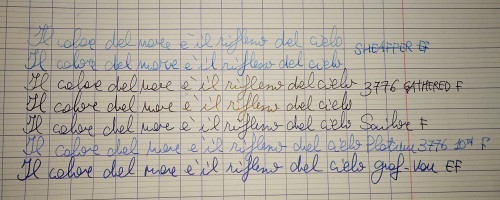 Il colore del mare è il riflesso del cielo
Il colore del mare è il riflesso del cielo SHEAFFER EF
Il colore del mare è il riflesso del cielo 3776 GATHERED F
Il colore del mare è il riflesso del cielo
Il colore del mare è il riflesso del cielo Sailor F
Il colore del mare è il riflesso del cielo Platinum 3776 F
Il colore del mare è il riflesso del cielo graf von EF